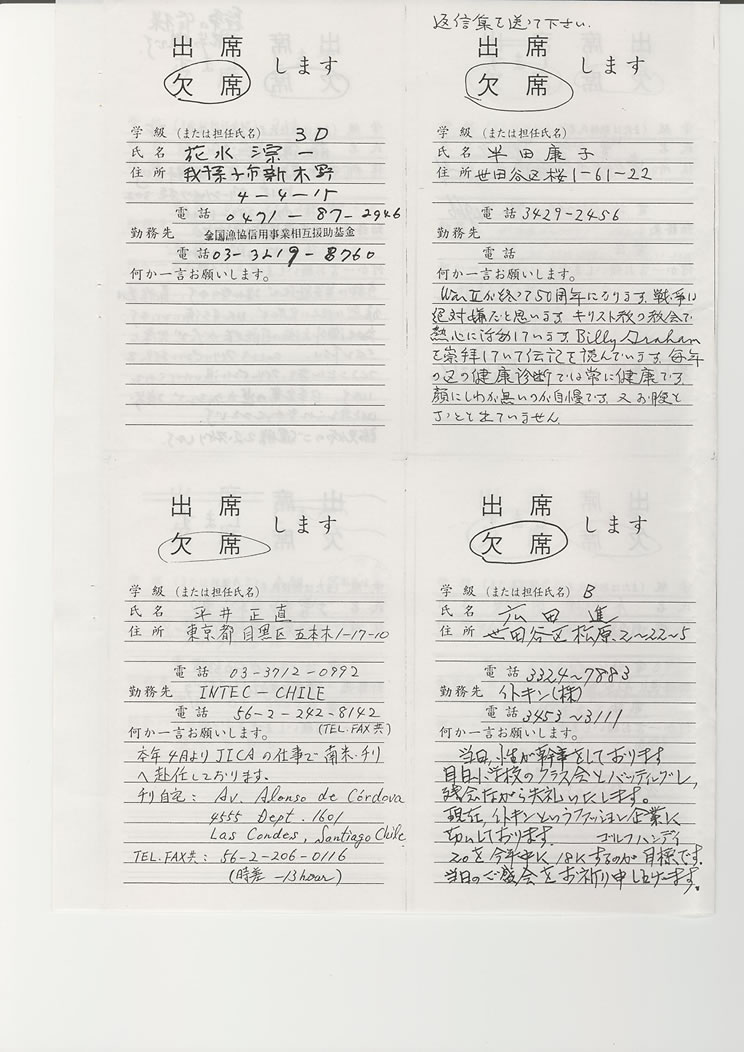 出席
欠席
します
学級（または担任氏名） 3D
氏名 花水 淙一
住所 我孫子市新木野
4-4-15
電話 0471-87-2946
勤務先 全国漁協信用事業相互援助基金
電話 03-3219-8760
何か一言お願いします。
返信集を送って下さい.
出席
欠席
します
学級（または担任氏名）
氏名 半田康子
住所 世田谷区桜1-61-22
電話 3429-2456
勤務先
電話
何か一言お願いします。
War IIが終って50周年になります。戦争は
絶対嫌だと思います。キリスト教の教会で
熱心に活動しています。Billy Graham
を崇拝していて伝記を読んでいます。毎年
の区の健康診断では常に健康です。
顔にしわが無いのが自慢です。又お腹も
ちっとも出ていません
出席
欠席
します
学級（または担任氏名）
氏名 平井正直
住所 東京都目黒区五本木1-17-10
電話 03-3712-0992
勤務先 INTEC-CHILE
電話 56-2-242-8142
(TEL.FAX共)
何か一言お願いします。
本年4月よりJICAの仕事で南米・チリ
へ赴任しております。
チリ自宅: Av. Alonso de Córdova
4555 Dept. 1601
Las Condes, Santiago Chile
TEL.FAX共: 56-2-206-0116
(時差 -13hour)
出席
欠席
します
学級（または担任氏名） B
氏名 広田 進
住所 世田谷区松原.2~22~5
電話 3324~7883
勤務先 イトキン(株)
電話 3453~3111
何か一言お願いします。
当日、小生が幹事をしております
目白小学校のクラス会とバッティングし、
残念ながら失礼いたします。
現在、イトキンというファッション企業に
おります. ゴルフハンディ
20を今年中に18にするのが目標です.
当日のご盛会をお祈り申し上げます.